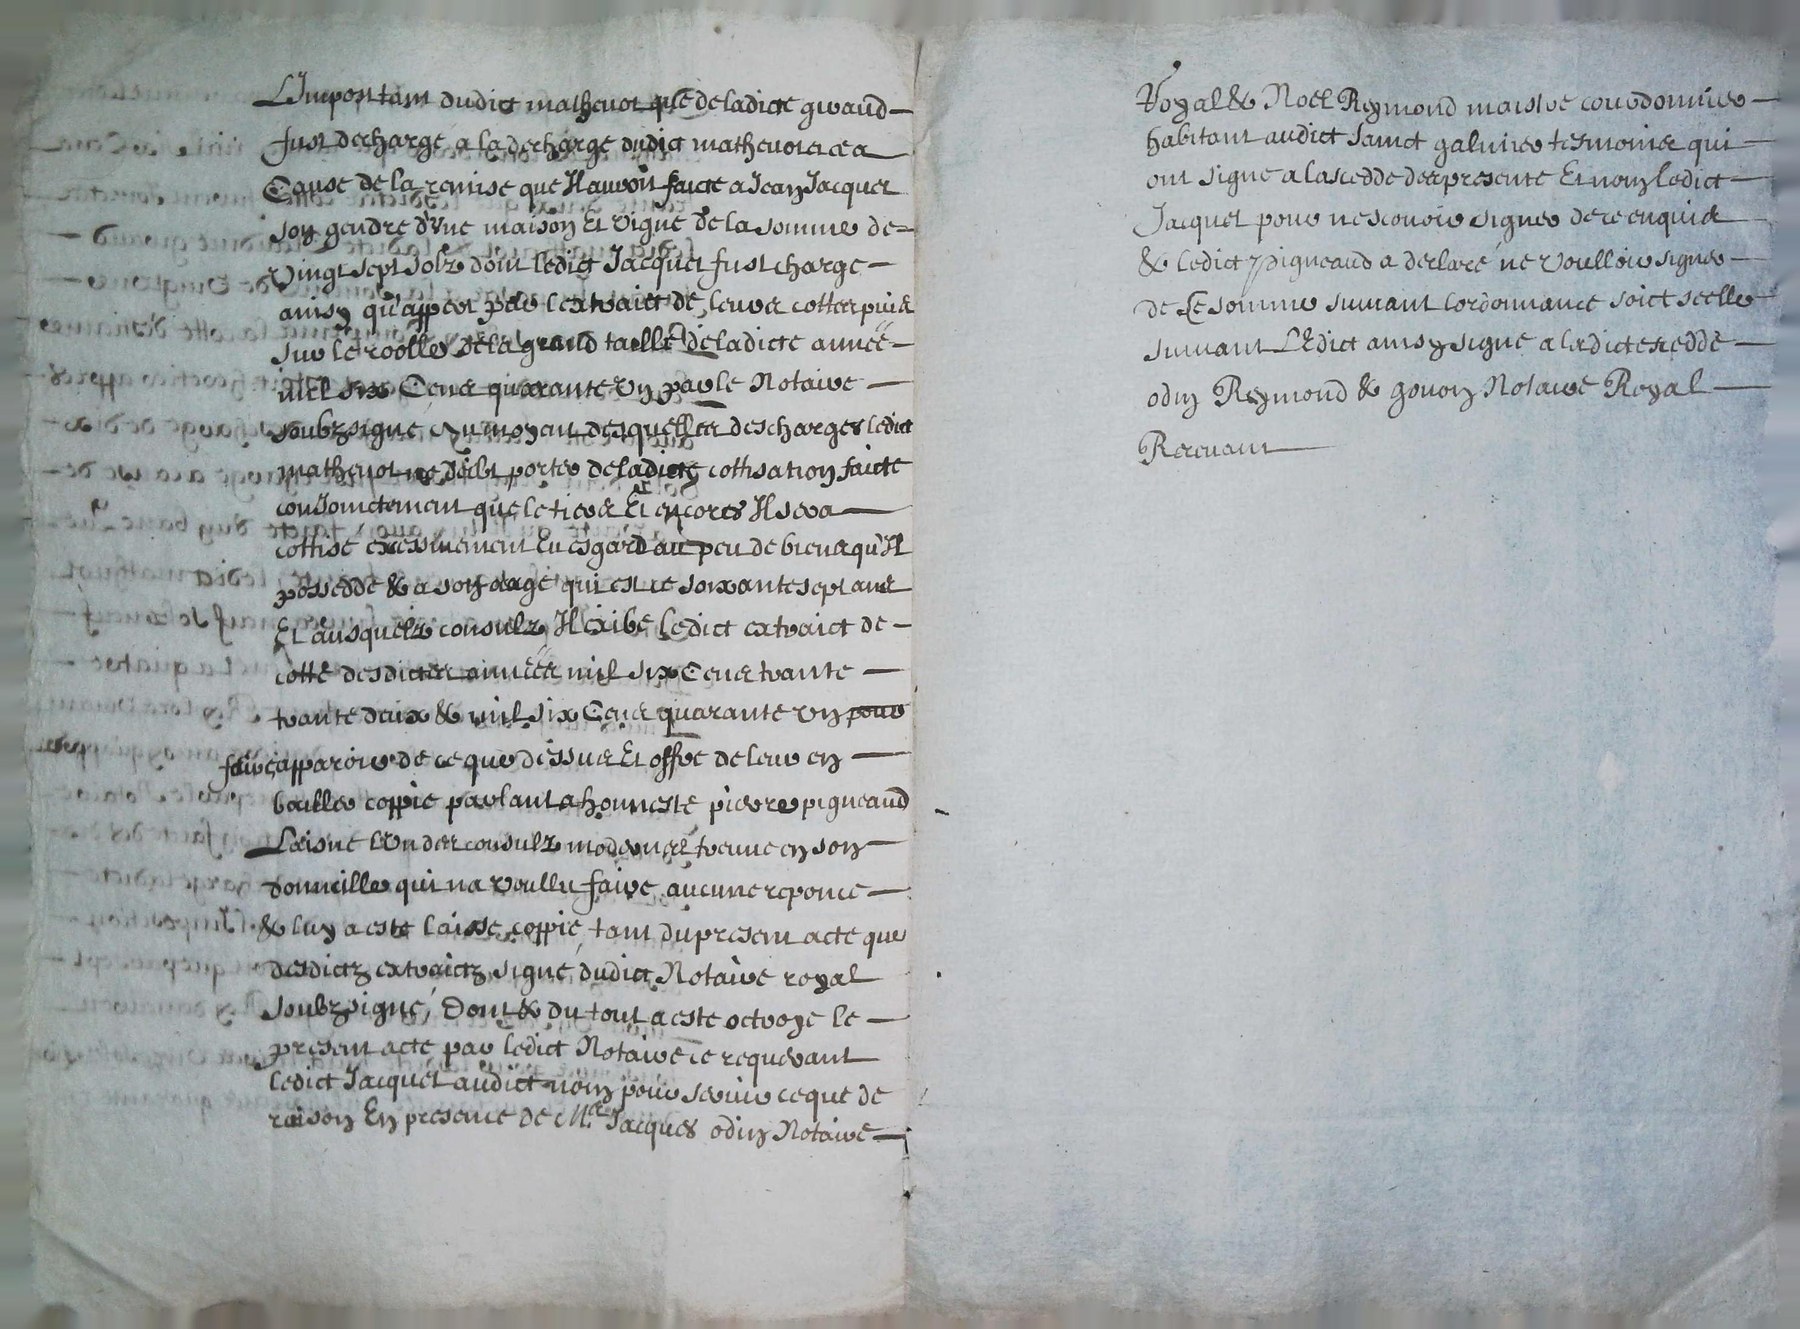 L'Important dudict mathevot que de ladicte grand
fust decharge a la decharge dudict mathevot et ce a
Cause de la remise que Il avoit faicte a Jean Jacquet
son gendre d'Une maison Et vigne de la somme de
vingt sept solz dont ledict Jacquet fust charge
ainsy qu'appert par lextraict de leurs cottes puis
sur le roolle de la grand taille de ladicte année
mil six Cens quarante Un par le Notaire
soubzsigne Au moyen desquelles descharges ledict
mathevot ne doibt porter de ladicte cottisation faicte
conjoinctement que le tiers Et encores Il sera
cottise excessivement Eu esgard au peu de biens qu'Il
possedde & a son aage qui est de soixante sept ans
Et ausquelz consulz Il exibe ledict extraict de
cotte desdictes années mil six Cens trante
trante deux & mil six Cens quarante Un pour
faire apparoir de ce que dessus Et offre de leur en
bailler coppie parlant a honneste pierre pigneaud
Laisne lUn des consulz modernes treuve en son
domicille qui na voullu faire aucune reponce
& luy a este laisse coppie tant du present acte que
desdictz extraictz signé dudict Notaire royal
soubzsigné, Dont & du tout a este octroye le
present acte par ledict Notaire ce requerant
ledict Jacquet audict nom pour servir ce que de
raison En presence de Me Jacques odin Notaire
Royal & Noel Reymond maistre courdonnier
habitant audict sainct galmier tesmoins qui
ont signe a la scedde des presente Et non ledict
Jacquet pour ne scavoir signer de ce enquis
& ledict pigneaud a declaré ne voulloir signer
de Ce somme suivant lordonnance soict scelle
suivant LEdict ainsy signe a ladicte scedde
odin Reymond & gonon Notaire Royal
Recevant